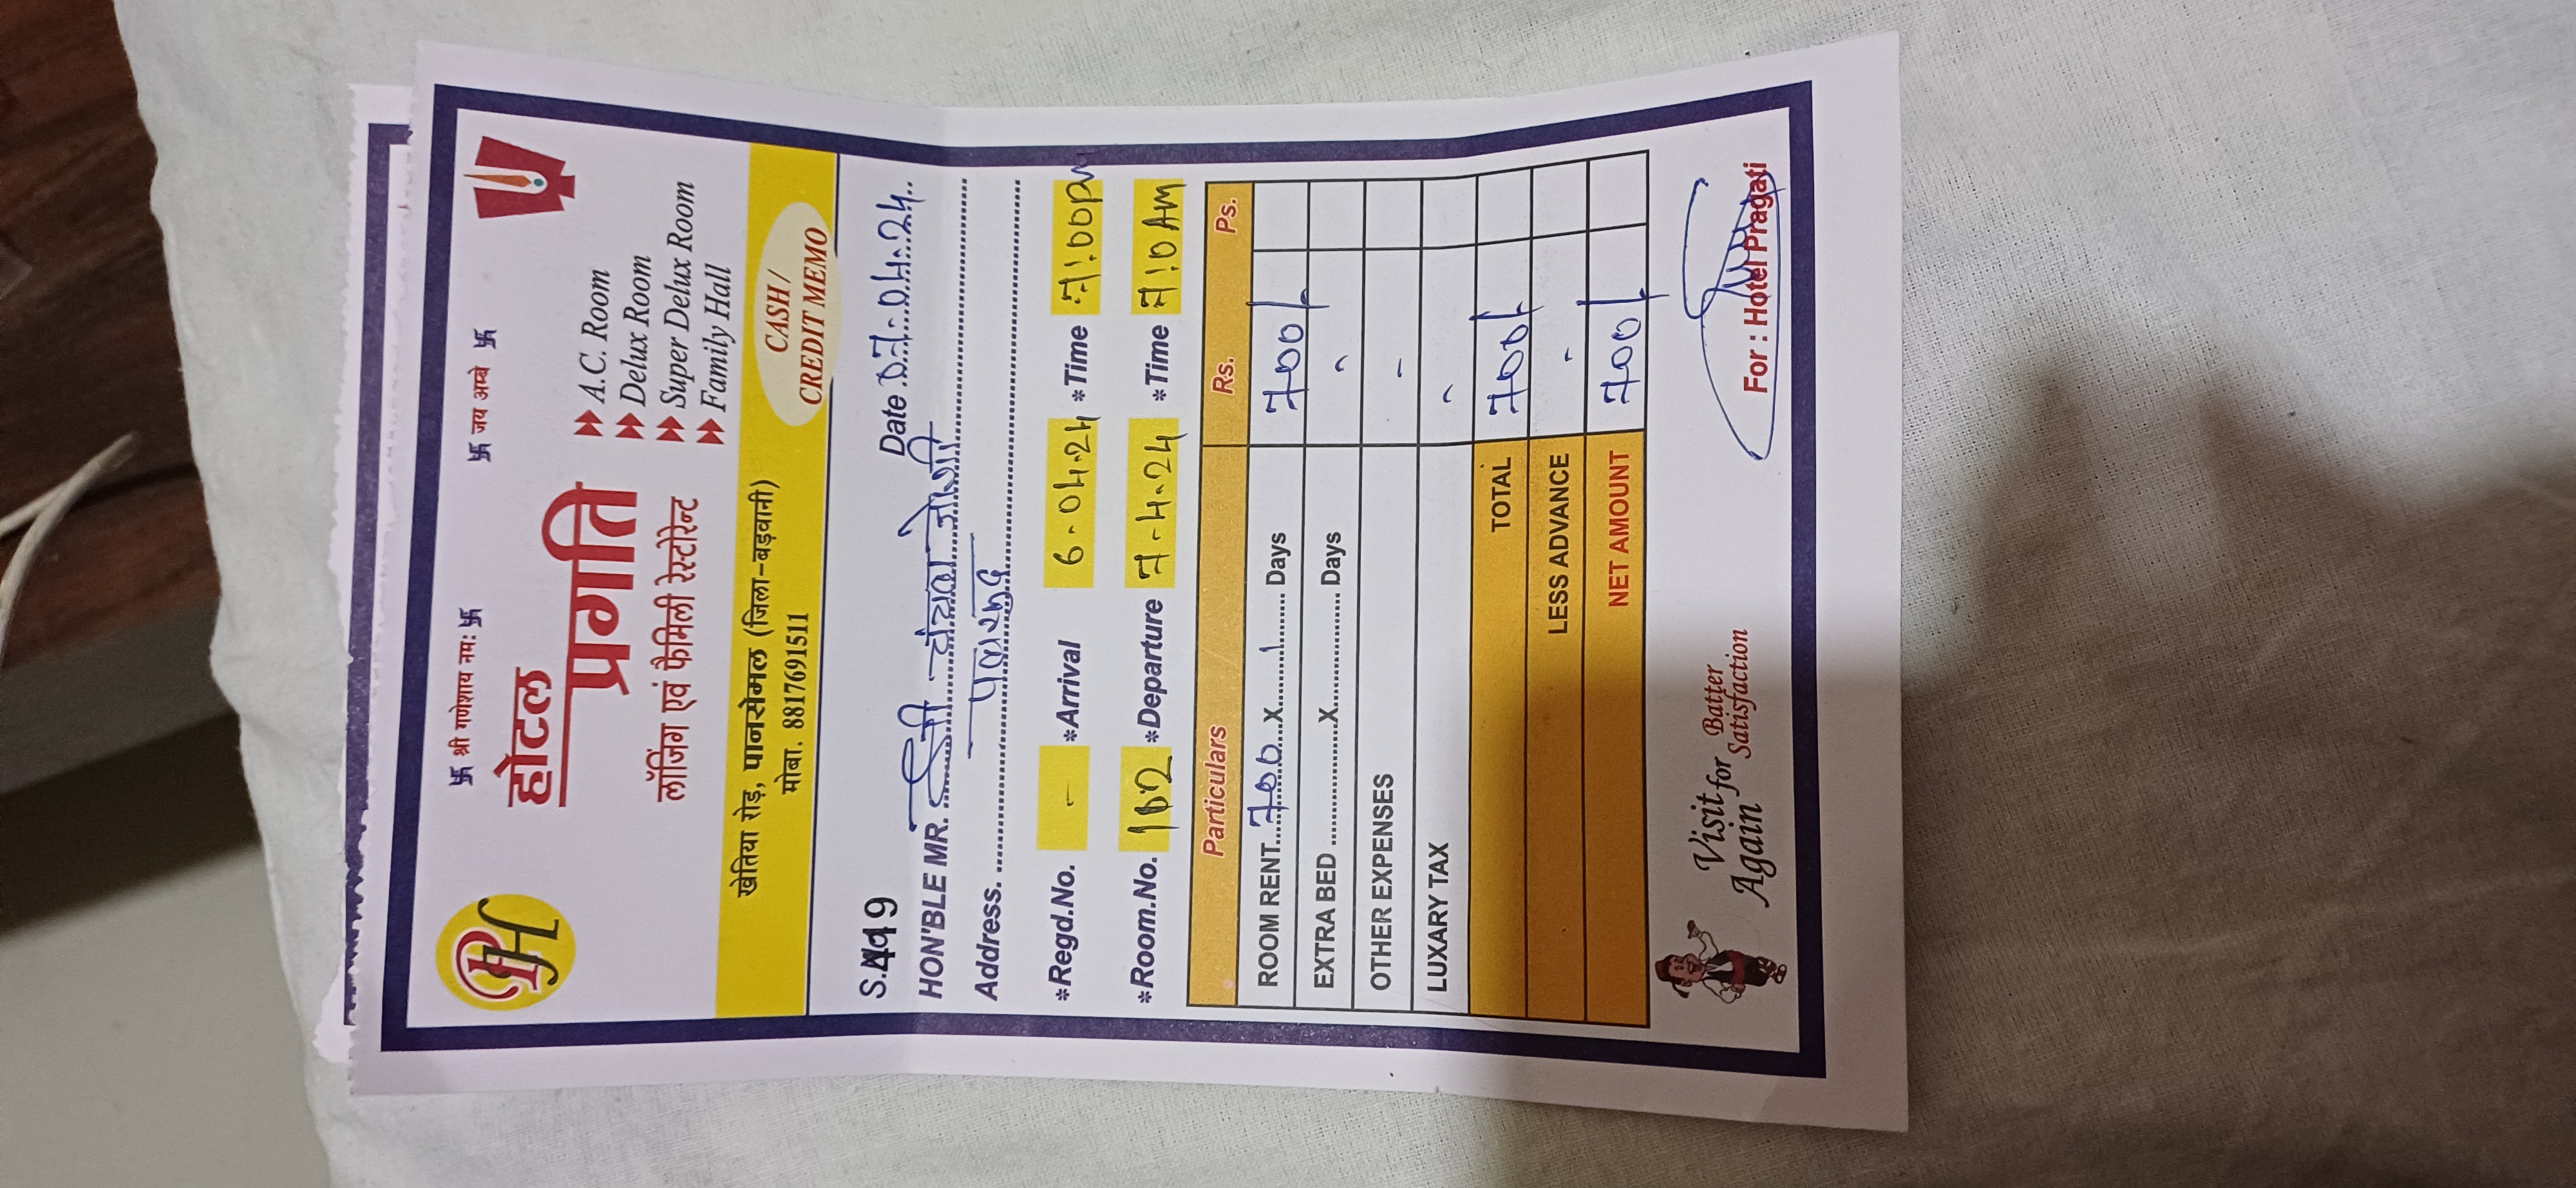 卐 श्री गणेशाय नम: 卐 卐 जय अम्बे 卐
PH
होटल
प्रगति
लॉजिंग एवं फैमिली रेस्टोरेन्ट
A.C. Room
Delux Room
Super Delux Room
Family Hall
खेतिया रोड़, पानसेमल (जिला-बड़वानी)
मोबा. 8817691511
CASH /
CREDIT MEMO
Date 07-04-24
HON'BLE MR. श्री चंचल जोशी
Address.
*Regd.No. - *Arrival 6-04-24 *Time 7:00pm
*Room.No. 102 *Departure 7-4-24 *Time 7:0 AM
Particulars Rs. Ps.
ROOM RENT 700 X 1 Days 700/-
EXTRA BED X Days -
OTHER EXPENSES -
LUXARY TAX -
TOTAL 700/-
LESS ADVANCE -
NET AMOUNT 700/-
Visit for Batter
Again Satisfaction
For : Hotel Pragati